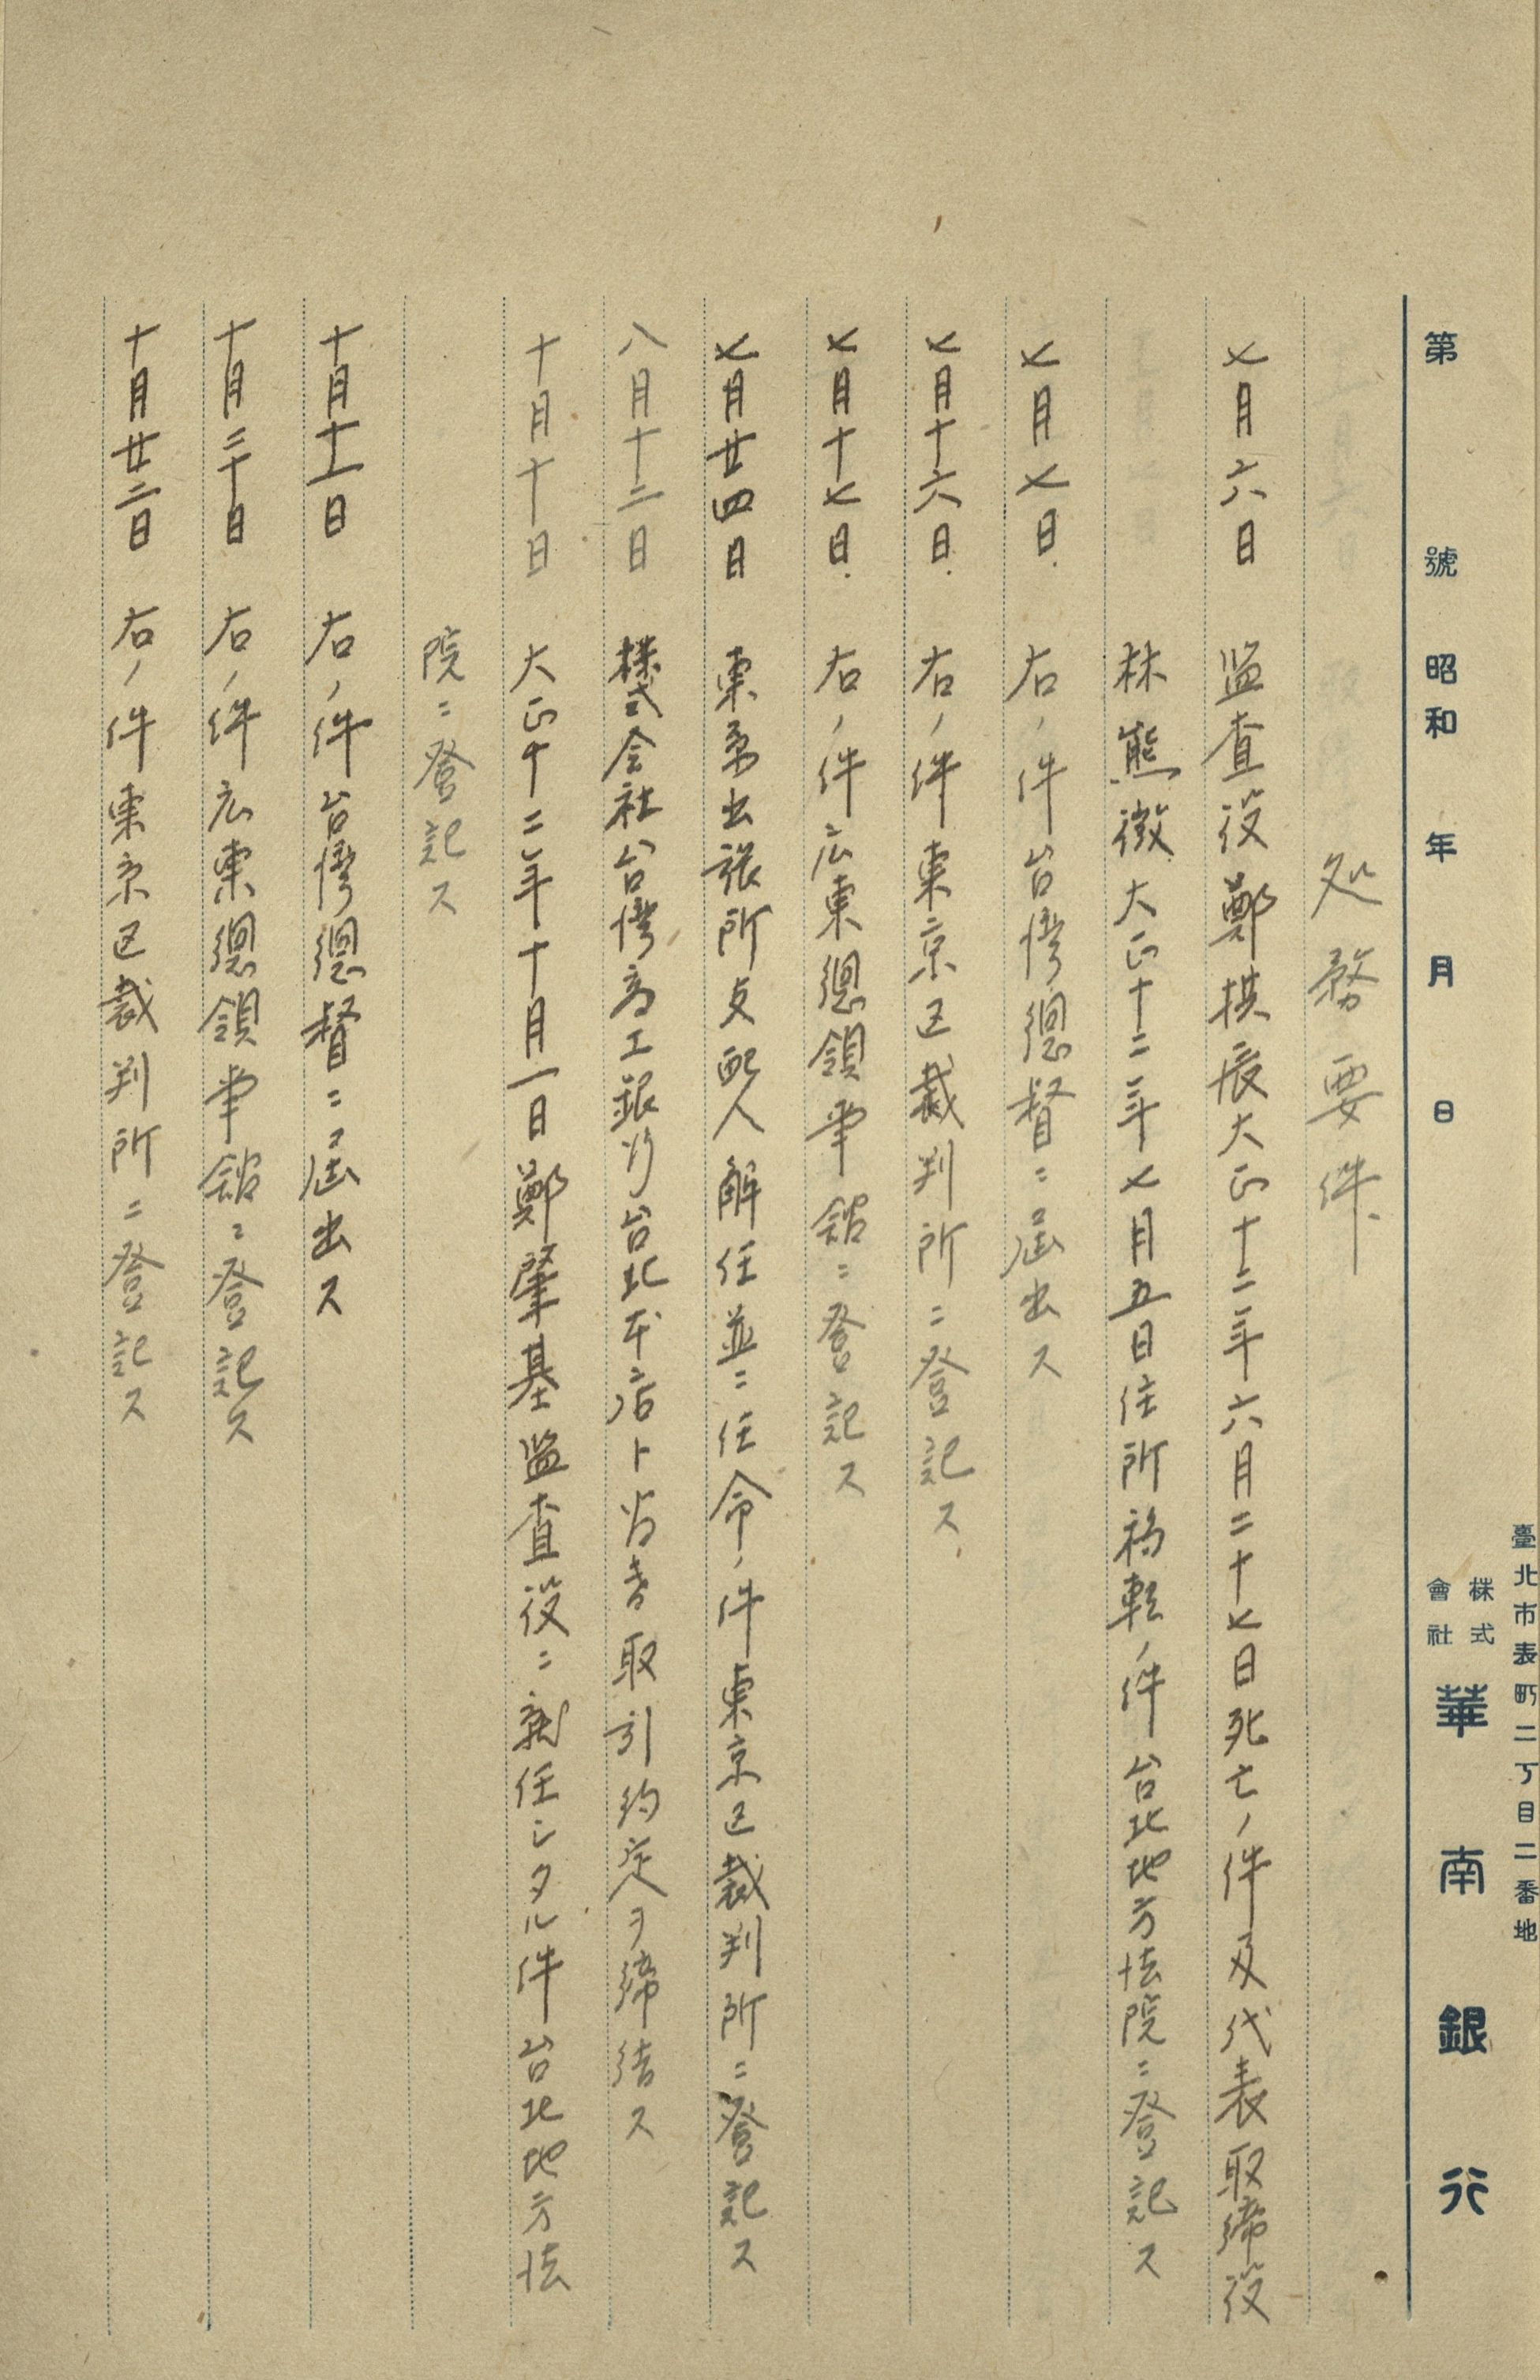 臺北市表町二丁目二番地
株式會社 華南銀行
第 號 昭和 年 月 日
処務要件
七月六日 監査役鄭拱辰大正十二年六月二十七日死亡ノ件及代表取締役
林熊徴大正十二年七月五日住所移転ノ件台北地方法院ニ登記ス
七月七日 右ノ件台湾總督ニ届出ス
七月十六日 右ノ件東京区裁判所ニ登記ス
七月十七日 右ノ件広東總領事館ニ登記ス
七月廿四日 東京出張所支配人解任並ニ任命ノ件東京区裁判所ニ登記ス
八月十二日 株式会社台湾商工銀行台北本店ト為替取引約定ヲ締結ス
十月十日 大正十二年十月一日鄭肇基監査役ニ就任シタル件台北地方法
院ニ登記ス
十月十一日 右ノ件台湾總督ニ届出ス
十月二十日 右ノ件広東總領事館ニ登記ス
十月廿二日 右ノ件東京区裁判所ニ登記ス